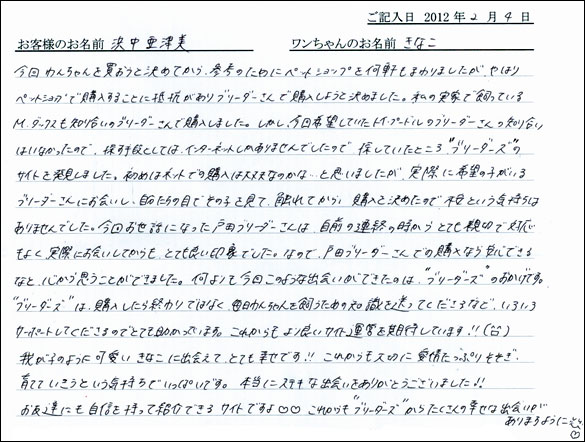 ご記入日 2012年2月4日
お客様のお名前 浜中亜津美 ワンちゃんのお名前 きなこ
今回わんちゃんを買おうと決めてから、参考のためにペットショップを何軒もまわりましたが、やはり
ペットショップで購入することに抵抗がありブリーダーさんで購入しようと決めました。私の実家で飼っている
M.ダックスも知り合いのブリーダーさんで購入しました。しかし、今回希望していたトイ・プードルのブリーダーさんの知り合い
はいなかったので、探す手段としては、インターネットしかありませんでしたので 探していたところ "ブリーダーズ"の
サイトを発見しました。初めはネットでの購入は大丈夫なのかな…と思いましたが、実際に希望の子がいる
ブリーダーさんにお会いし、自分たちの目でその子と見て、触れてから、購入と決めたので不安という気持ちは
ありませんでした。今回お世話になった戸田ブリーダーさんは、自前の連絡の時から とても親切で対応
もよく、実際にお会いしてからも、とても良い印象でした。なので、戸田ブリーダーさんでの購入なら安心できる
なと、心から思うことができました。何よりも今回このような出会いができたのは、"ブリーダーズ"のおかげです。
"ブリーダーズ"は、購入したら終わりではなく 毎日わんちゃんを飼うための知識を送ってくださるなど、いろいろ
サーポートしてくださるのでとても助かっています。これからも より良いサイト運営を期待しています!!(台)
我が子のように可愛い きなこに出会えて、とても幸せです!! これからも大切に 愛情たっぷりそそぎ、
育てていきたいという気持ちでいっぱいです。本当にステキな出会いをありがとうございました!!
お友達にも自信を持って紹介できる サイトですよ♡♡ これからも"ブリーダーズ"からたくさんの幸せな出会いが
ありますように